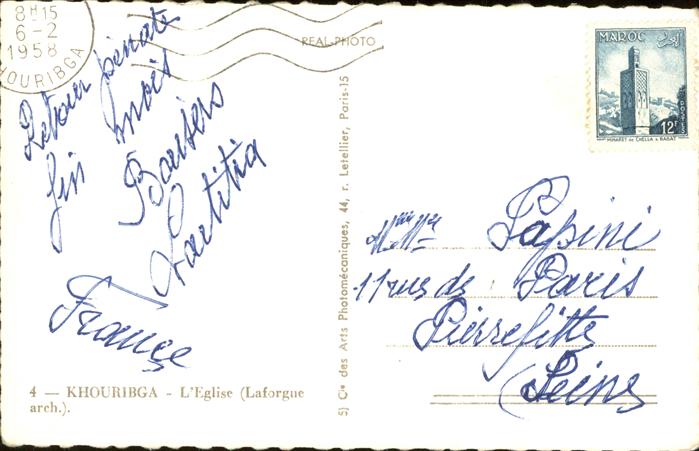 8H15
6-2
1958
KHOURIBGA
REAL-PHOTO
MAROC
12F
POSTES
MINARET de CHELLA à RABAT
Retour pénate
fin mois
Baisers
Laetitia
France
Papini
11 rue de Paris
Pierrefitte
(Seine)
5) Cie des Arts Photomécaniques, 44, r. Letellier, Paris-15
4 — KHOURIBGA - L'Eglise (Laforgue
arch.).